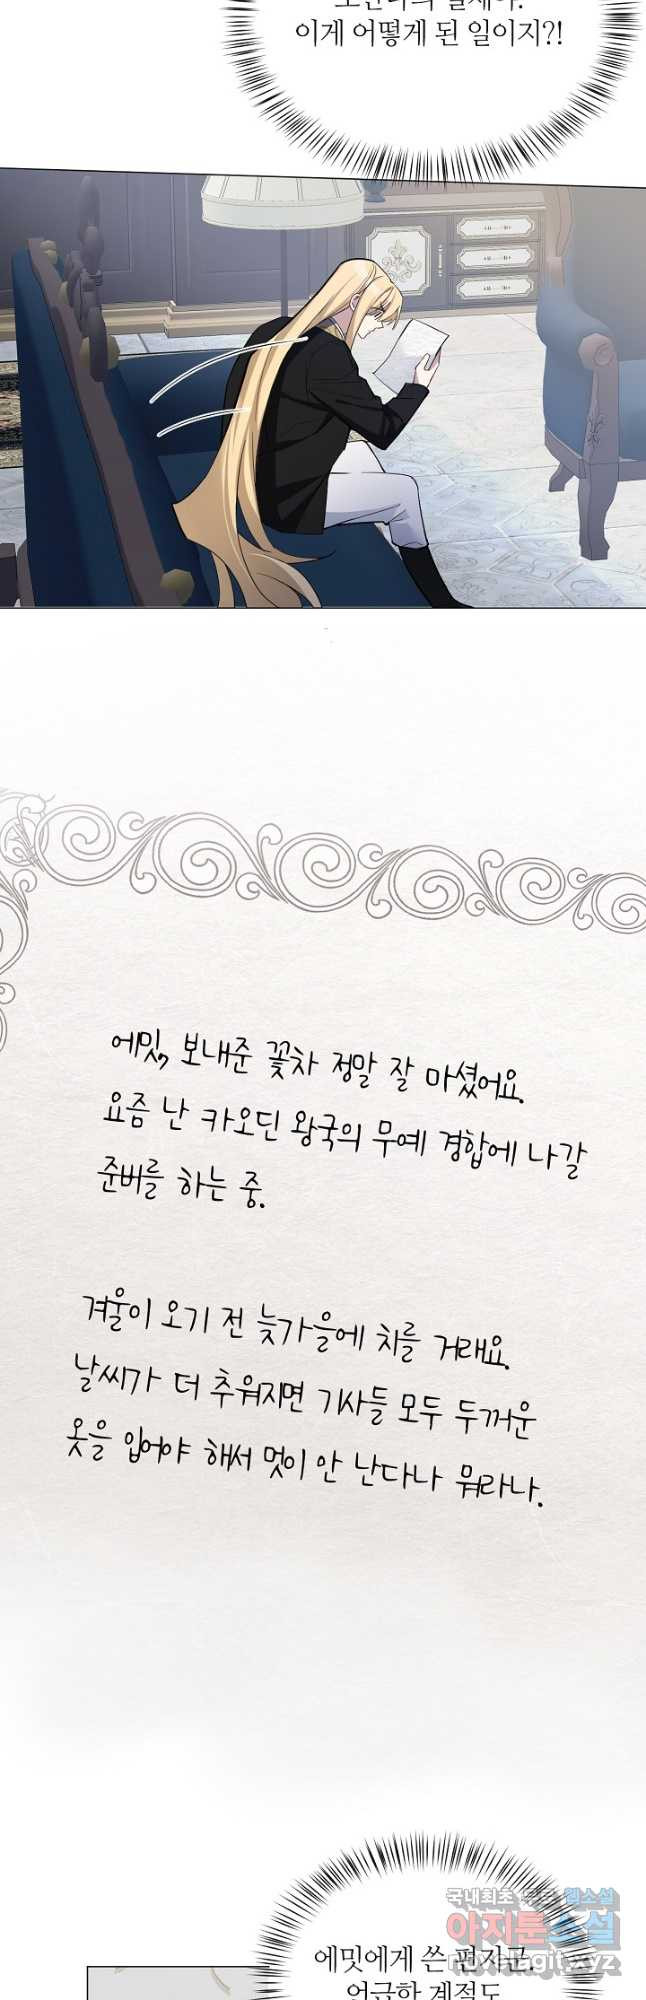 이게 어떻게 된 일이지?!
에밋, 보내준 꽃차 정말 잘 마셨어요.
요즘 난 카오딘 왕국의 무예 경합에 나갈
준비를 하는 중.
겨울이 오기 전 늦가을에 치를 거래요.
날씨가 더 추워지면 기사들 모두 두꺼운
옷을 입어야 해서 멋이 안 난다나 뭐라나.
국내최초 웹소설
아지툰소설
novelagit.xyz
에밋에게 쓴 편지군.
언급한 계절도